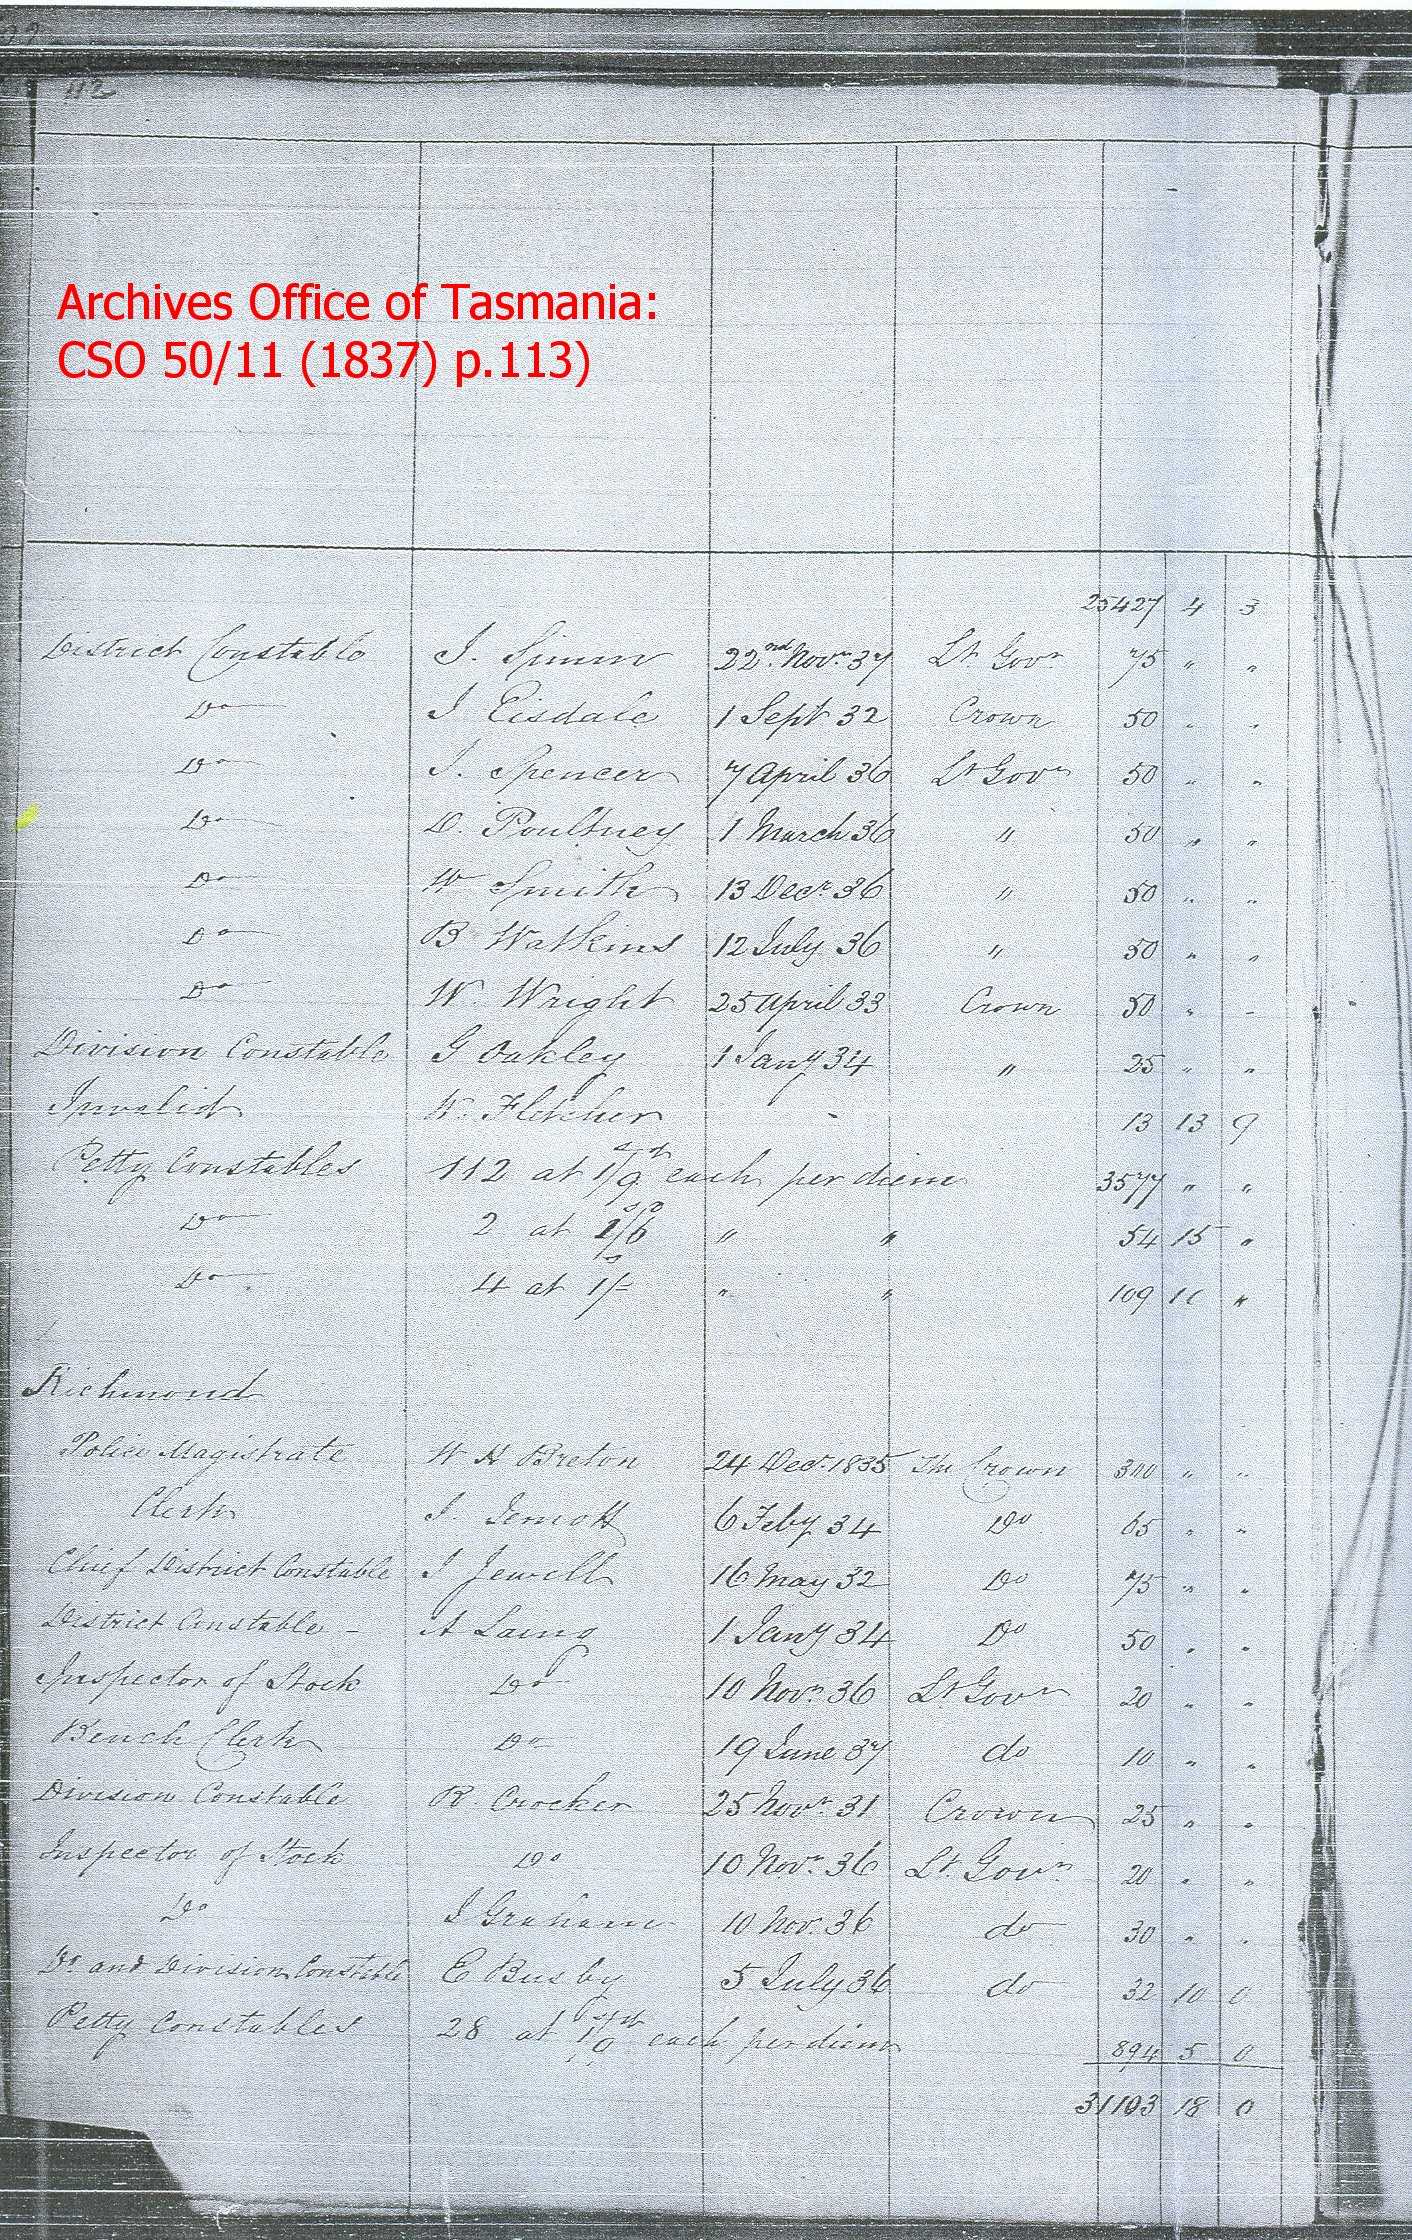 112
Archives Office of Tasmania:
CSO 50/11 (1837) p.113)
25427 4 3
District Constable J. Simm 22nd Novr 37 Lt Govr 75 " "
Do J Eisdale 1 Sept 32 Crown 50 " "
Do J. Spencer 7 April 36 Lt Govr 50 " "
Do D. Poultney 1 March 36 " 50 " "
Do W Smith 13 Decr 36 " 50 " "
Do B Watkins 12 July 36 " 50 " "
Do W. Wright 25 April 33 Crown 50 " "
Division Constable G Oakley 1 Jany 34 " 25 " "
Invalid W. Fletcher - 13 13 9
Petty Constables 112 at 1/9 each per diem 3577 " "
Do 2 at 1/6 " " 54 15 "
Do 4 at 1/- " " 109 10 "
Richmond
Police Magistrate W H Breton 24 Decr 1835 The Crown 300 " "
Clerk J. 6 Feby 34 Do 65 " "
Chief District Constable J Jewell 16 May 32 Do 75 " "
District Constable - A Laing 1 Jany 34 Do 50 " "
Inspector of Stock Do 10 Novr 36 Lt Govr 20 " "
Bench Clerk Do 19 June 37 do 10 " "
Division Constable R. Crocker 25 Novr 31 Crown 25 " "
Inspector of Stock Do 10 Novr 36 Lt. Govr 20 " "
Do J Graham 10 Nov. 36 do 30 " "
Do and Division Constable E Busby 5 July 36 do 32 10 0
Petty Constables 28 at 1/9 each per diem 894 5 0
31103 18 0